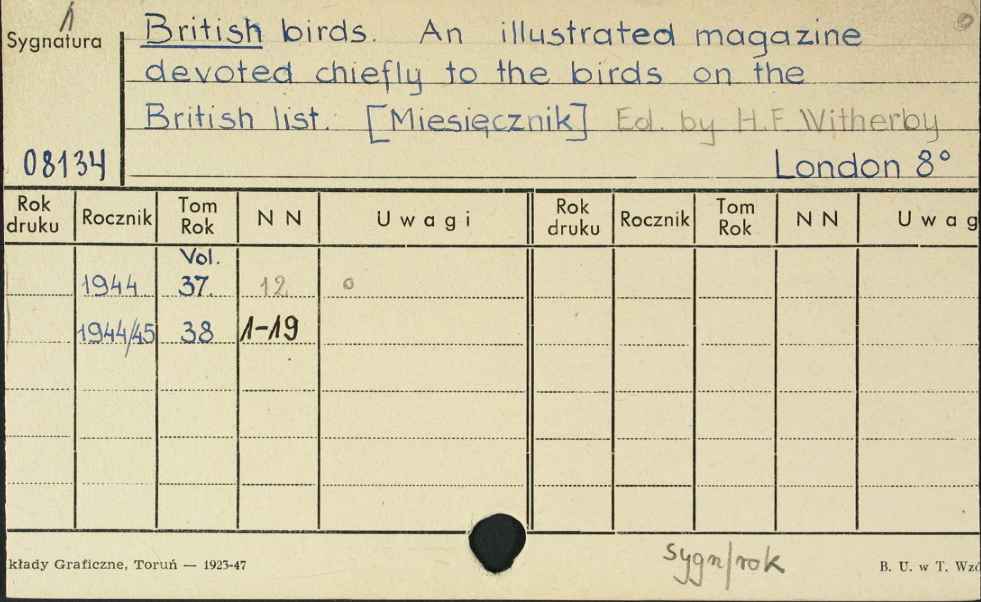 Sygnatura
British birds. An illustrated magazine
devoted chiefly to the birds on the
British list. [Miesięcznik] Ed. by H.F. Witherby
08134
London 8°
Rok druku Rocznik Tom Rok N N Uwagi Rok druku Rocznik Tom Rok N N Uwag
Vol.
1944 37. 12 o
1944/45 38 1-19
sygn/rok
kłady Graficzne, Toruń — 1923-47
B. U. w T. Wzó